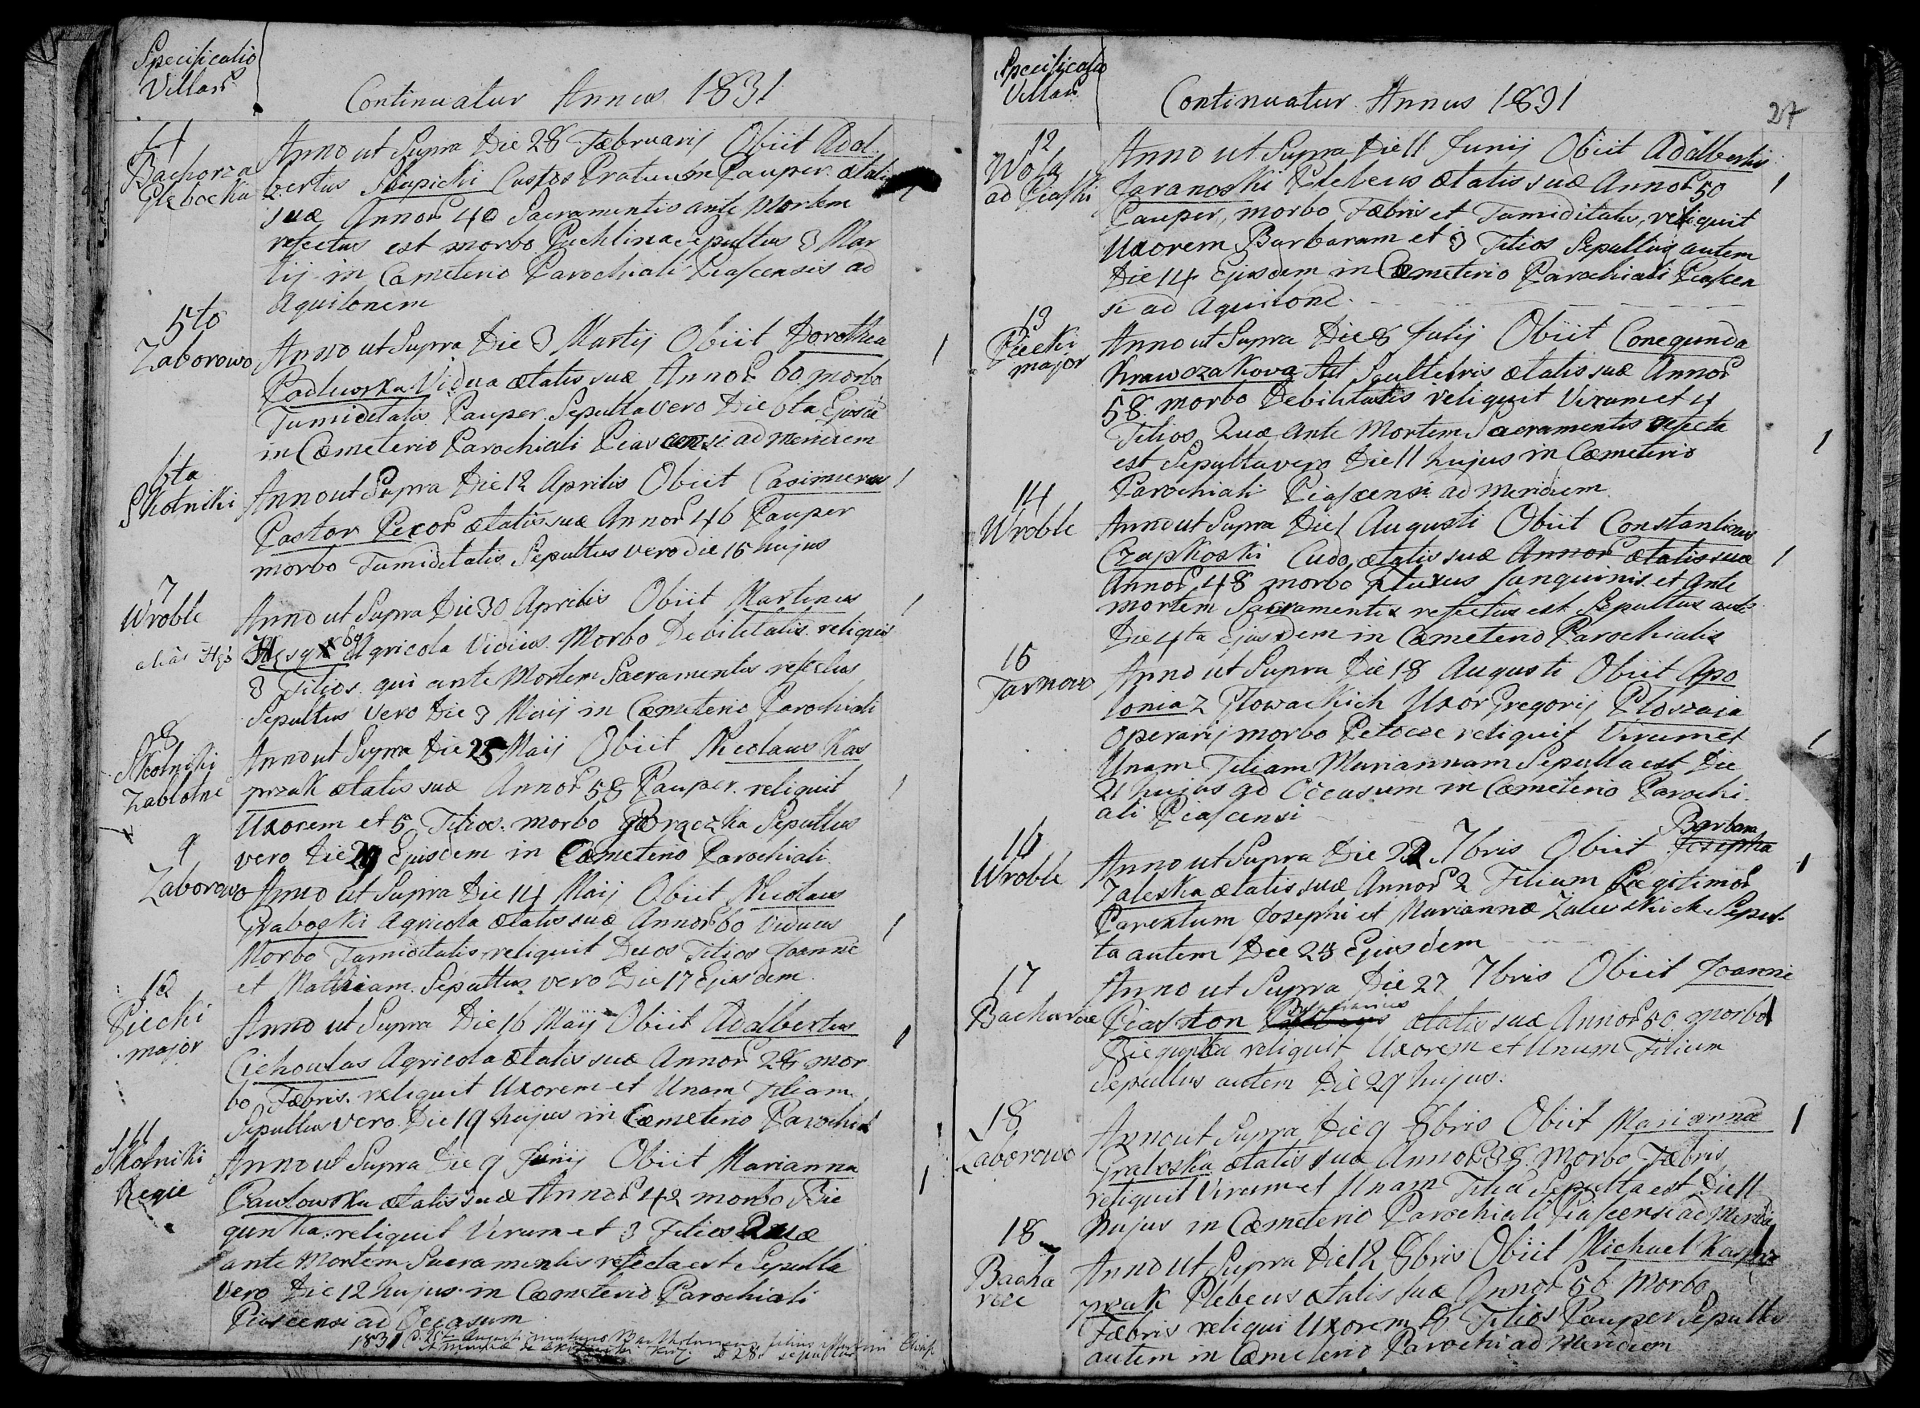 Specificatio
Villar
Continuatur Annus 1831
4
Bachorza
Głębocka
Anno ut Supra Die 28 Fæbruarij Obiit Adal
bertus Słupicki Custos Pratum Pauper ætatis
suæ Annor 40 Sacramentis ante Mortem
refectus est morbo Puchlina sepultus 3 Mar
tij in Cæmeterio Parochiali Piascensis ad
Aquilonem
5to
Zaborowo
Anno ut Supra Die 3 Martij Obiit Dorothea
Padlewska Vidua ætatis suæ Annor 60 morbo
Tumiditatis Pauper Sepulta vero Die 6ta Ejusd
in Cæmeterio Parochiali Piascensi ad Meridiem
6ta
Skotniki
Anno ut Supra Die 12 Aprilis Obiit Casimirus
Pastor Pecor ætatis suæ Annor 46 Pauper
morbo Tumiditatis Sepultus vero die 15 hujus
7
Wroble
Anno ut Supra Die 30 Aprilis Obiit Martinus
Agricola Viduus Morbo Debilitatis reliquit
3 Filios qui ante Mortem Sacramentis refectus
Sepultus vero Die 3 Maij in Cæmeterio Parochiali
8
Skotniki
Zabłotne
Anno ut Supra Die 25 Maij Obiit Nicolaus Kas
przak ætatis suæ Annor 58 Pauper reliquit
Uxorem et 5 Filios morbo Gorączka Sepultus
vero Die 29 Ejusdem in Cæmeterio Parochiali
9
Zaborowo
Anno ut Supra Die 14 Maij Obiit Nicolaus
Graboski Agricola ætatis suæ Annor 60 Viduus
Morbo Tumiditatis reliquit Duos Filios Joanne
et Mathiam Sepultus vero Die 17 Ejusdem
10
Piecki
major
Anno ut Supra Die 16 Maij Obiit Adalbertus
Cichoulas Agricola ætatis suæ Annor 28 mor
bo Fæbris reliquit Uxorem et Unam Filiam
Sepultus vero Die 19 hujus in Cæmeterio Parochial
11
Skotniki
Regie
Anno ut Supra Die 9 Junij Obiit Marianna
Pawłowska ætatis suæ Annor 42 morbo Bie
gunka reliquit Virum et 3 Filios Quæ
ante Mortem Sacramentis refecta est Sepulta
vero Die 12 hujus in Cæmeterio Parochiali
Piascensi ad Occasum
1831 Augusti Bartholomeus filius
28 sepultus
Specificatio
Villar
Continuatur Annus 1831
27
12
Wola
ad Piaski
Anno ut Supra Die 11 Junij Obiit Adalbertus
Jaranoski Plebeus ætatis suæ Annor 50
Pauper, morbo Fæbris et Tumiditatis, reliquit
Uxorem Barbaram et 3 Filios Sepultus autem
Die 14 Ejusdem in Cæmeterio Parochiali Piascen
si ad Aquilone
13
Piecki
major
Anno ut Supra Die 8 Julij Obiit Conegunda
Krawczakowa ætatis suæ Annor
58 morbo Debilitatis reliquit Virum et 4
Filios, Quæ Ante Mortem Sacramentis refecta
est Sepulta vero Die 11 hujus in Cæmeterio
Parochiali Piascensi ad Meridiem
14
Wroble
Anno ut Supra Die 1 Augusti Obiit Constantinus
Czapkoski Cudo ætatis suæ Annor ætatis suæ
Annor 48 morbo Fluxus Sanguinis et Ante
mortem Sacramentis refectus est Sepultus aute
Die 4ta Ejusdem in Cæmeterio Parochialis
15
Tarnowo
Anno ut Supra Die 18 Augusti Obiit Apo
lonia z Głowackich Uxor Gregorij Płoszaja
Operarij morbo Petocie reliquit Virum et
Unam Filiam Mariannam Sepulta est Die
21 hujus ad Occasum in Cæmeterio Parochi
ali Piascensi
16
Wroble
Anno ut Supra Die 22 7bris Obiit Josepha
Barbara
Zaleska ætatis suæ Annor 2 Filium Legitimor
Parentum Josephi et Mariannæ Zaleskich Sepul
ta autem Die 25 Ejusdem
17
Bachorce
Anno ut Supra Die 27 7bris Obiit Joannis
Piaston ætatis suæ Annor 50 morbo
Biegunka reliquit Uxorem et Unum Filium
Sepultus autem Die 29 hujus.
18
Zaborowo
Anno ut Supra Die 9 8bris Obiit Marianna
Graboska ætatis suæ Annor 38 Morbo Fæbris
reliquit Virum et Unam Filia Sepulta est Die 11
hujus in Cæmeterio Parochiali Piascensi ad Merid
18
Bacho
rce
Anno ut Supra Die 12 8bris Obiit Michael Kaspr
przak Plebeus ætatis suæ Annor 56 Morbo
Fæbris reliqui Uxorem Filios Pauper Sepultus
autem in Cæmeterio Parochi ad Meridiem